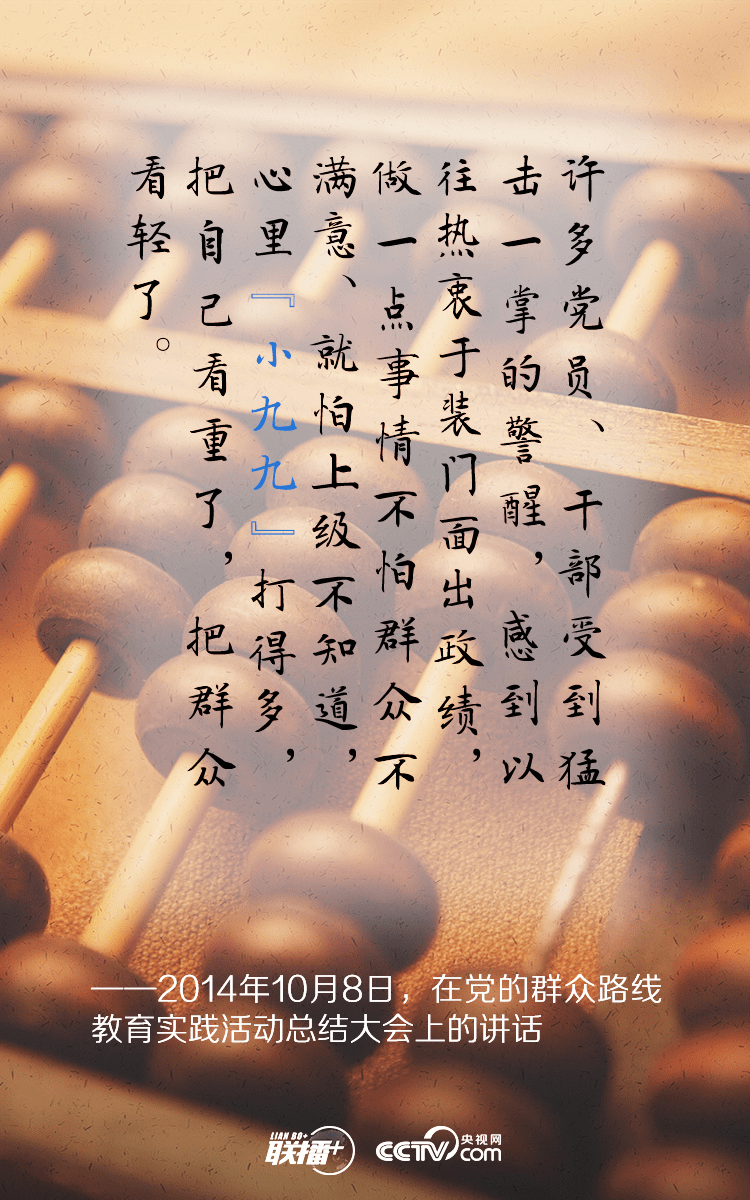 许多党员、干部受到猛
击一掌的警醒，感到以
往热衷于装门面出政绩，
做一点事情不怕群众不
满意、就怕上级不知道，
心里『小九九』打得多，
把自己看重了，把群众
看轻了。
——2014年10月8日，在党的群众路线
教育实践活动总结大会上的讲话
LIAN BO+
联播+
CCTV.com 央视网